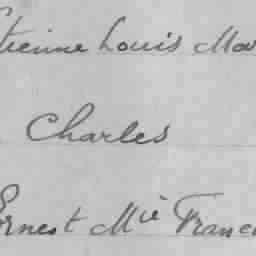 Etienne Louis Mar
Charles
Ernest Mie Franc